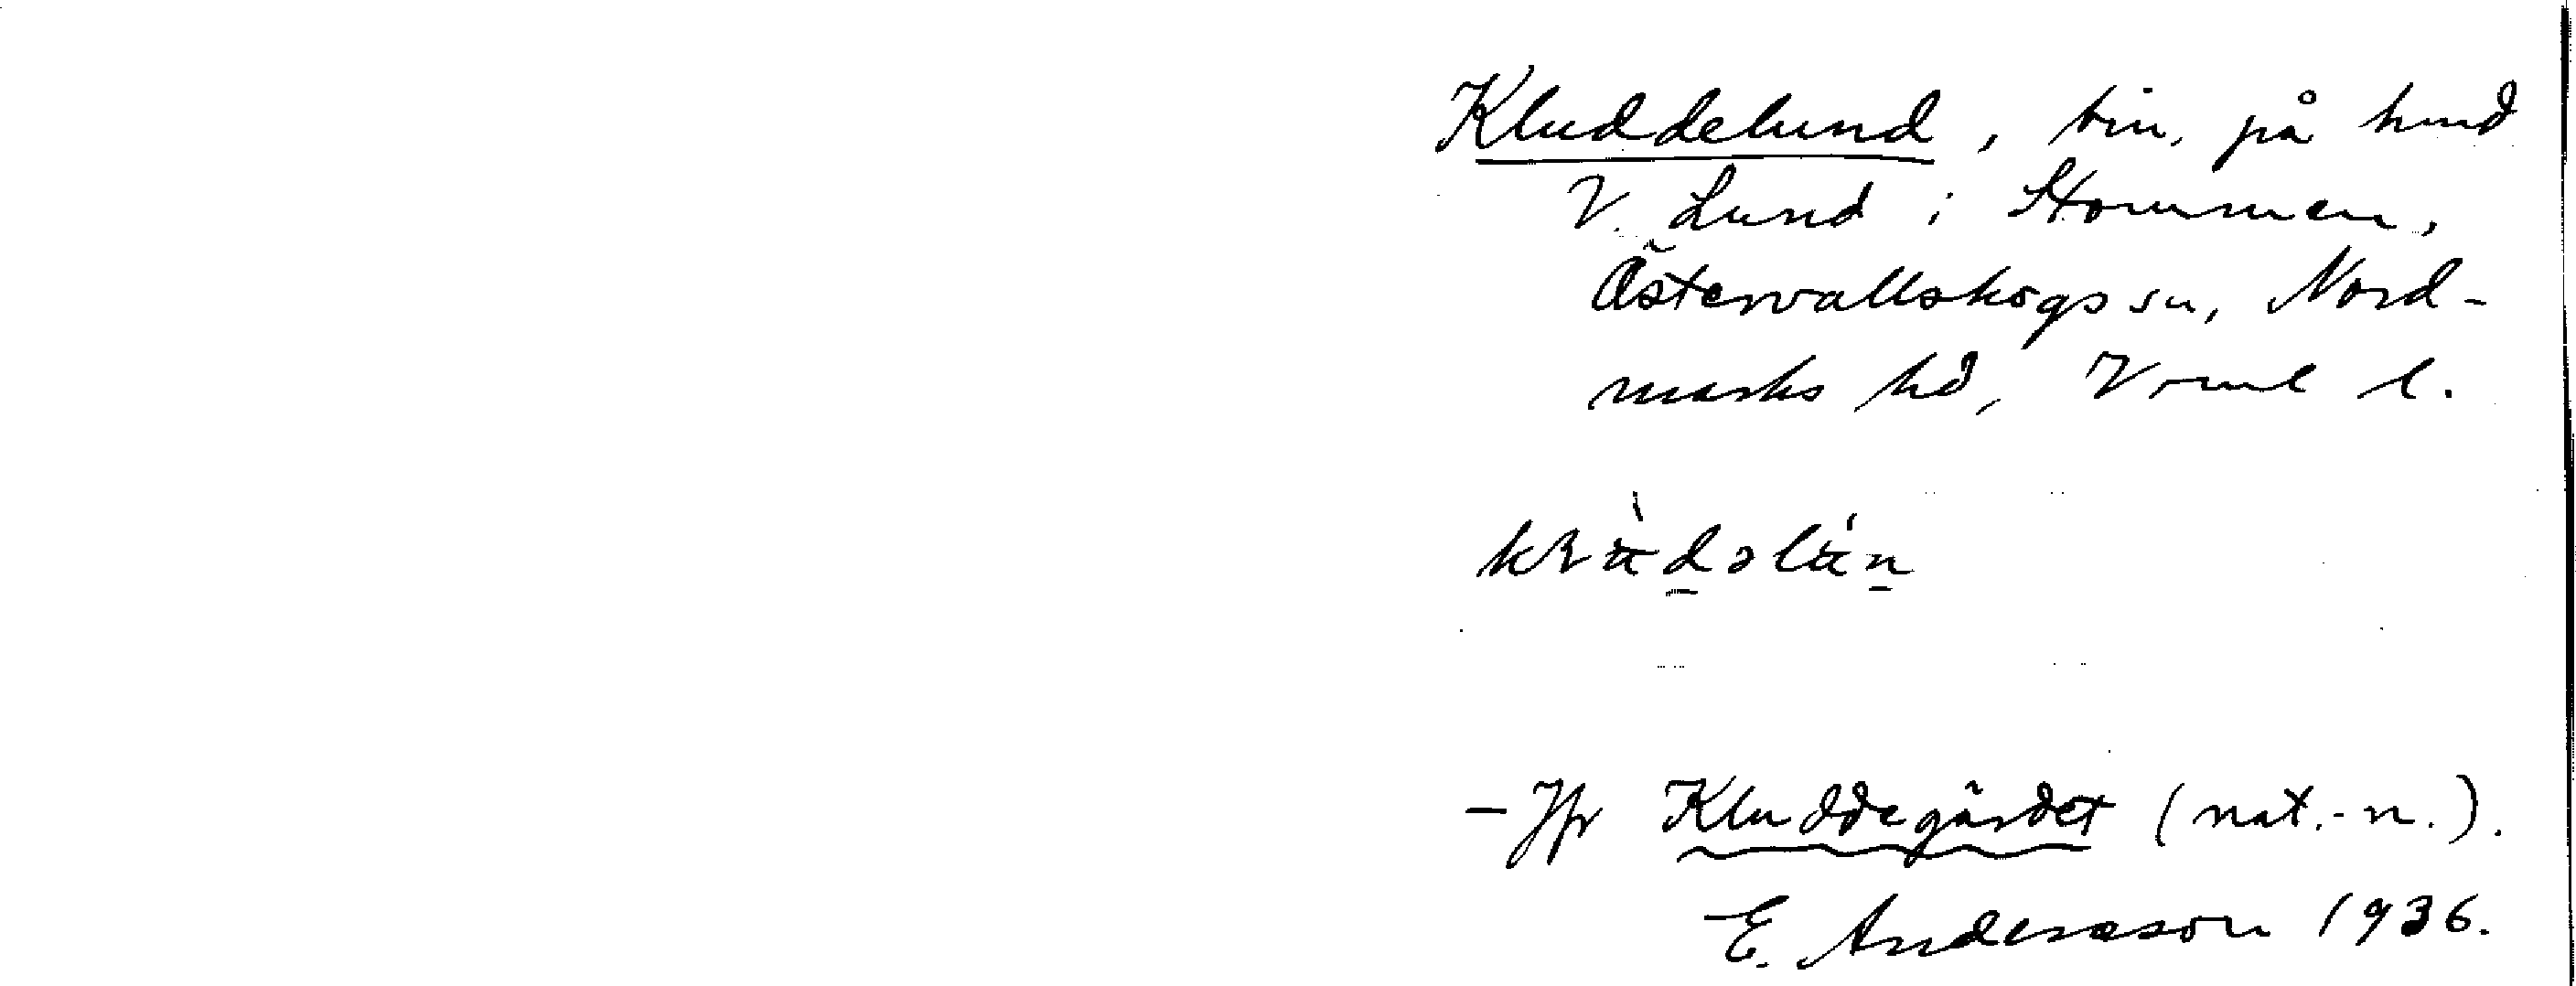 Kluddelund, bin. på hmd
V. Lund i Stommen,
Östervallskogs sn, Nord-
marks hd, Vrml l.
- Jfr Kluddegärdet (nat.-n.).
E. Andersson 1936.